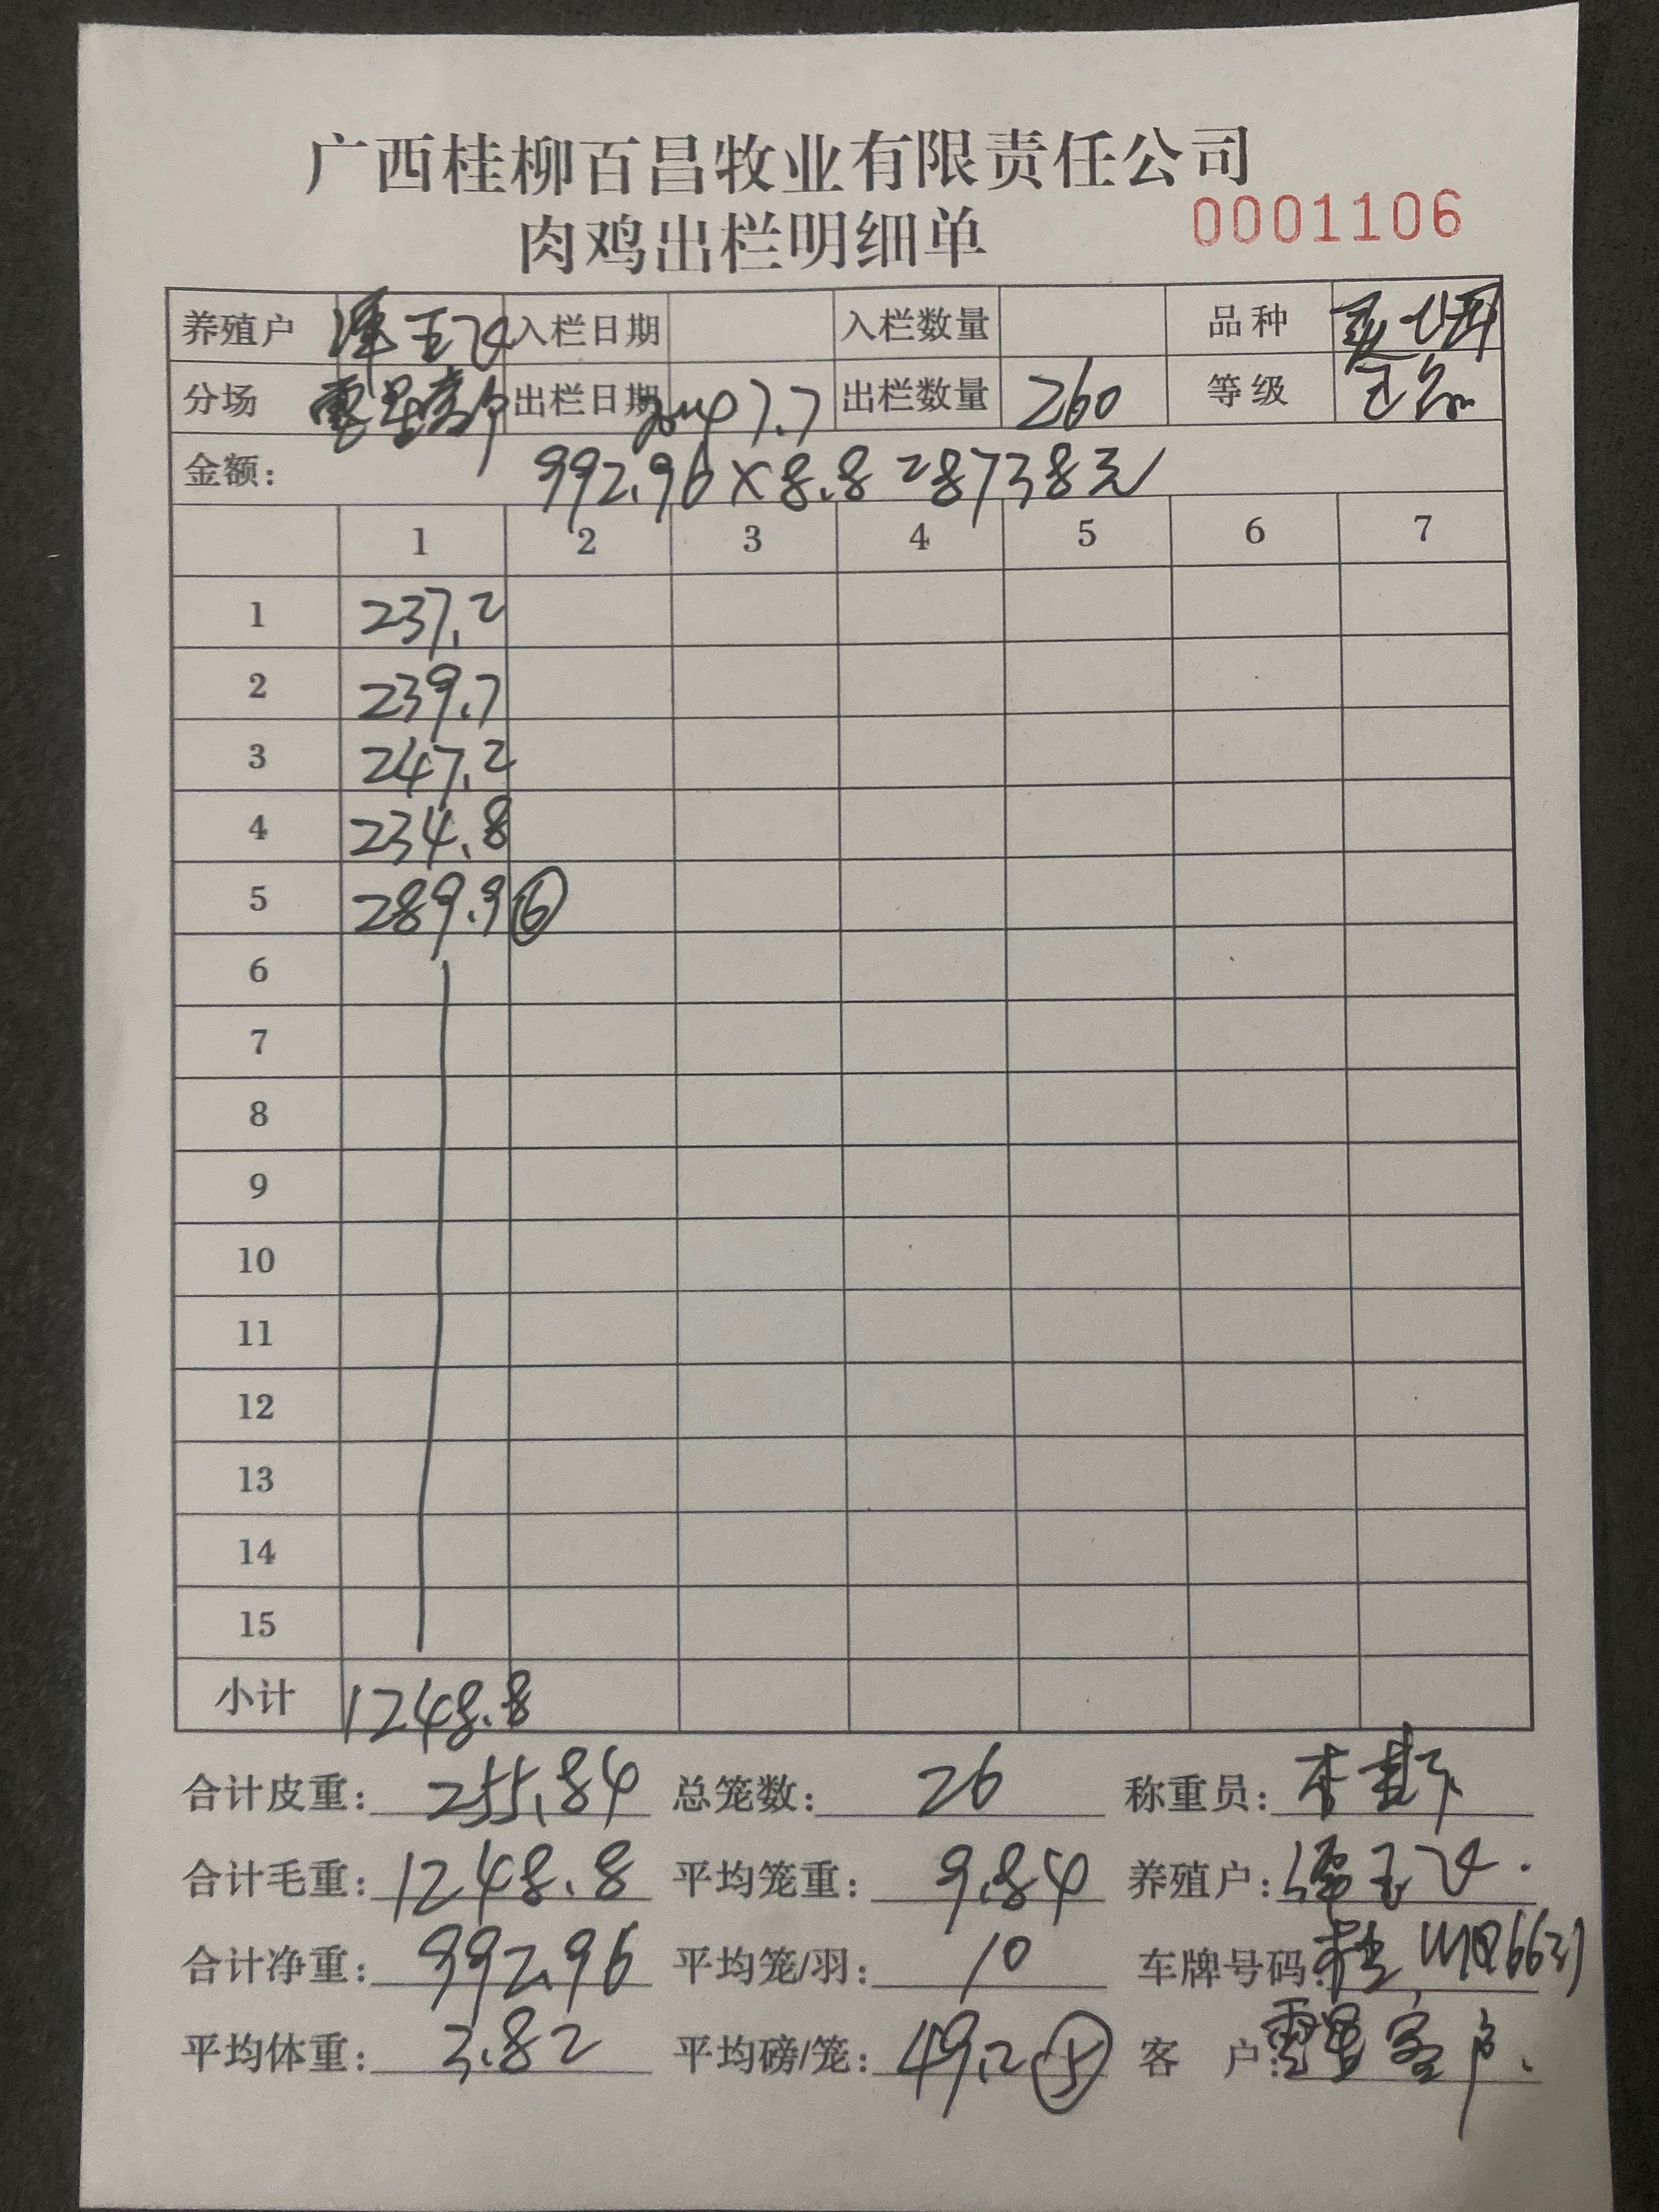 广西桂柳百昌牧业有限责任公司
肉鸡出栏明细单 0001106
养殖户 入栏日期 入栏数量 品种
分场 出栏日期 7.7 出栏数量 260 等级
金额: 992.96×8.8=8738元
1 2 3 4 5 6 7
1 237.2
2 239.7
3 247.2
4 234.8
5 289.9 ⑥
6
7
8
9
10
11
12
13
14
15
小计 1248.8
合计皮重: 255.84 总笼数: 26 称重员:
合计毛重: 1248.8 平均笼重: 9.84 养殖户:
合计净重: 992.96 平均笼/羽: 10 车牌号码: 桂
平均体重: 3.82 平均磅/笼: 49.2 ⑤ 客 户: 客户